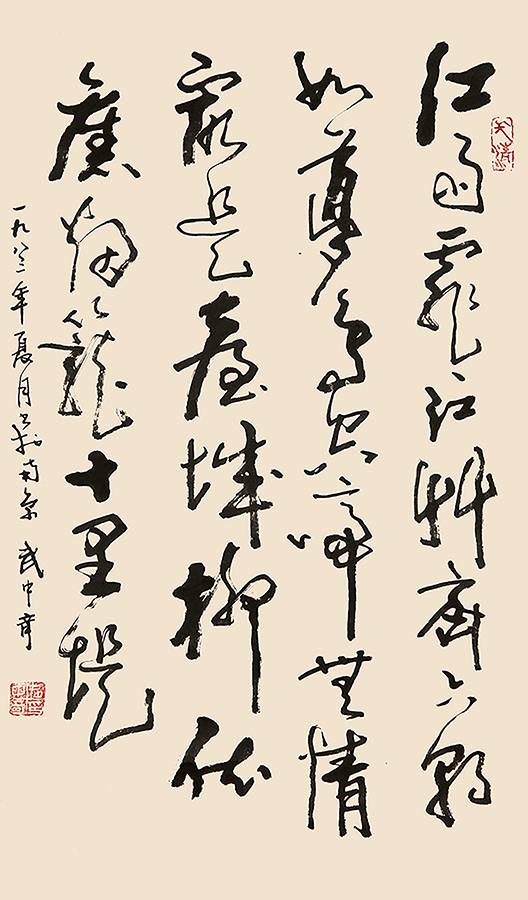 江雨霏霏江艸齊六朝
如夢鳥空啼無情
最是臺城柳依
舊烟籠十里堤
一九八三年夏月书於南京 武中奇